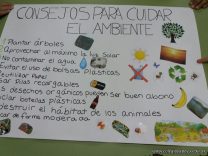 CONSEJOS PARA CUIDAR
EL AMBIENTE
Plantar árboles
Aprovechar al máximo la luz solar
No contaminar el agua
Evitar el uso de bolsas plásticas
Reutilizar papel
Usar pilas recargables
desechos orgánicos pueden ser buen abono
botellas plásticas
destruir el hábitat de los animales
de forma moderada